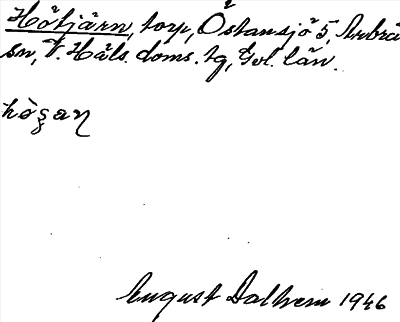 Hötjärn, torp, Östansjö 5, Arbrå
sn, V. Häls. doms. tg, Gvl. län.
August Dalhem 1946